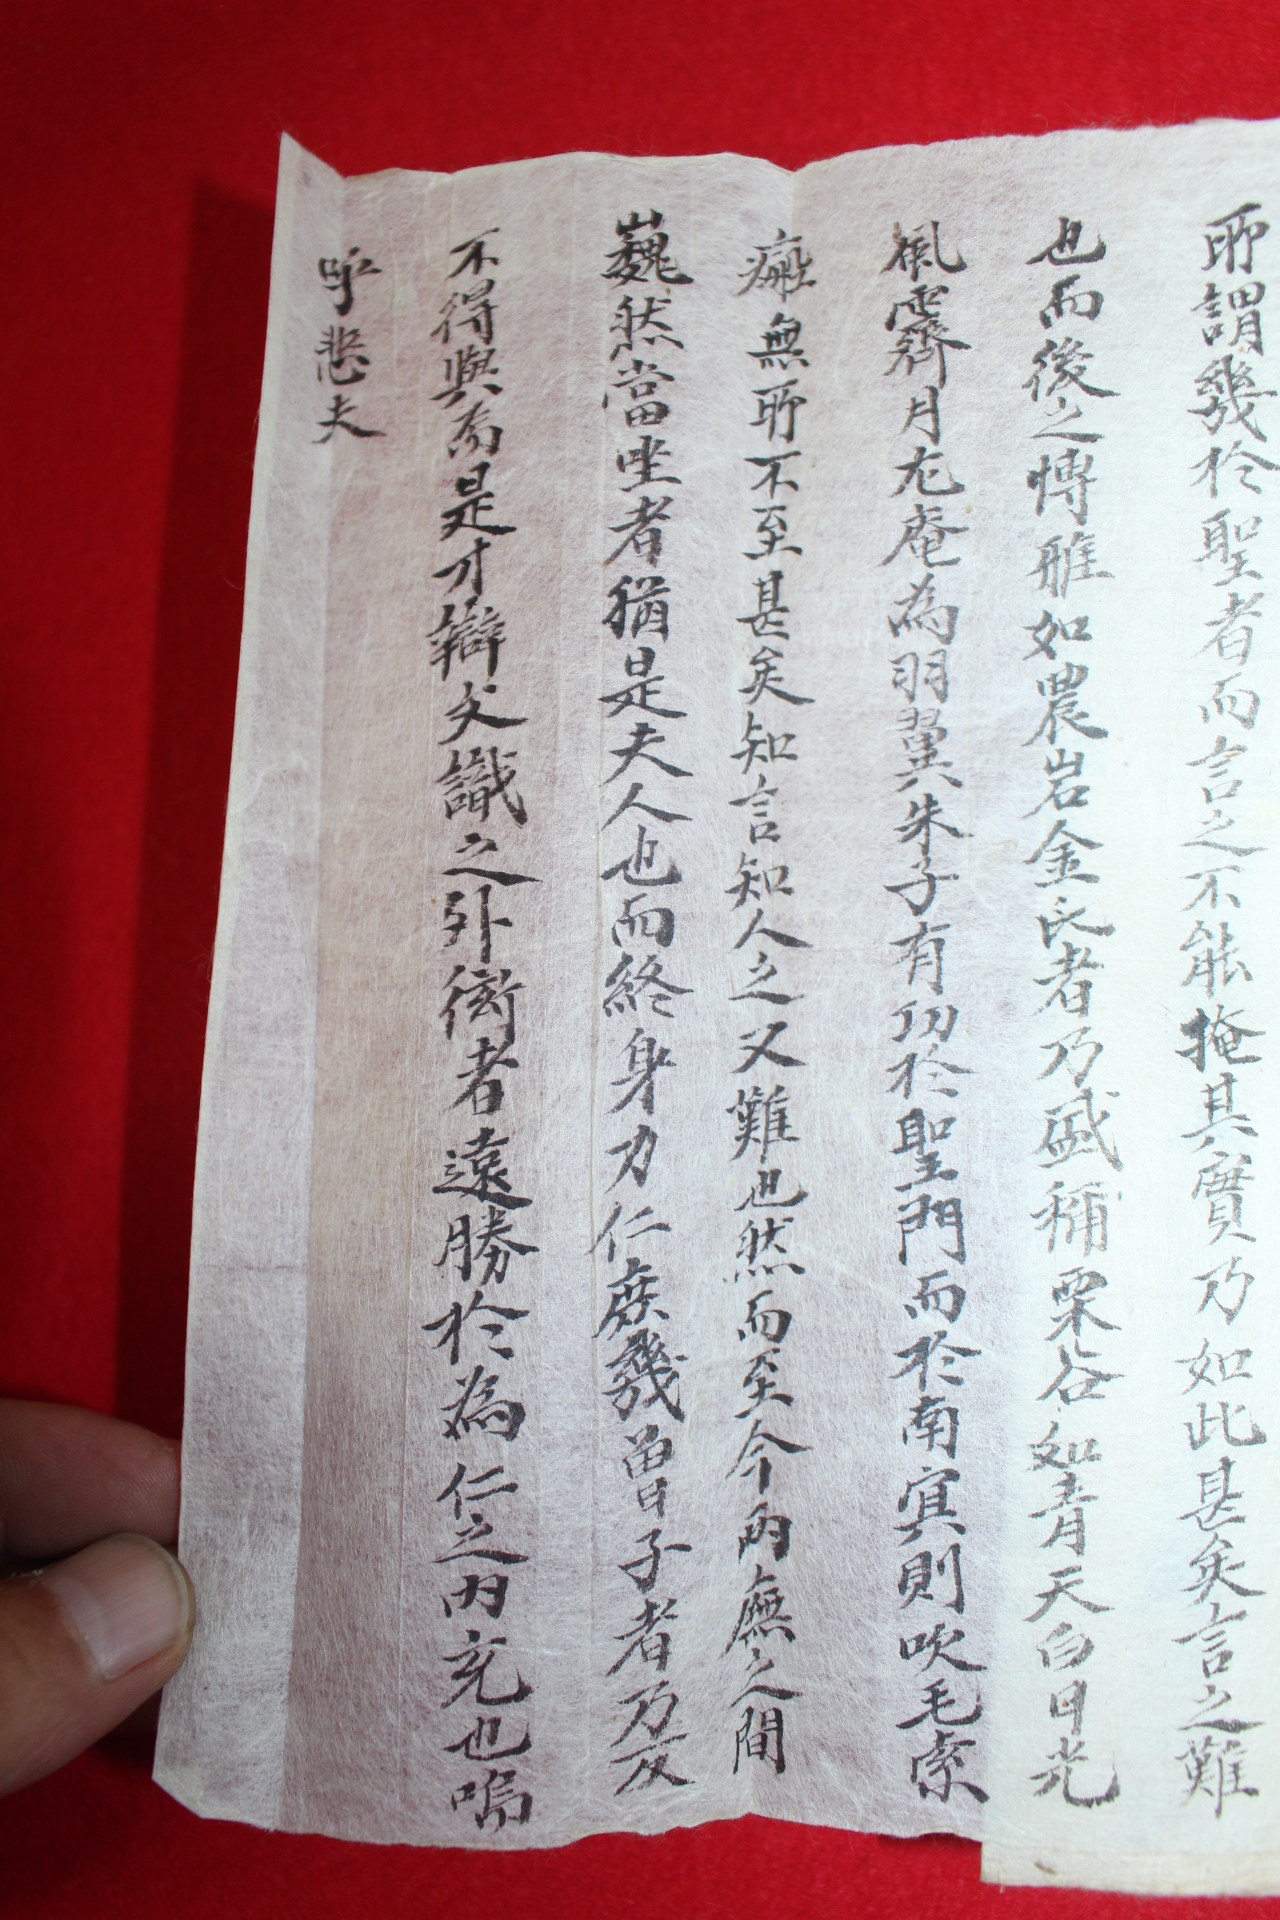 所謂幾於聖者而言之不能掩其實乃如此甚矣言之難
也而後之博雅如農岩金氏者乃盛稱栗谷如青天白日光
風霽月尤庵為羽翼朱子有功於聖門而於南冥則吹毛索
癍無所不至甚矣知言知人之又難也然而至今兩廡之間
巍然當坐者猶是夫人也而終身力仁庶幾曾子者乃反
不得與焉是才辯文識之外衒者遠勝於為仁之內充也嗚
呼悲夫